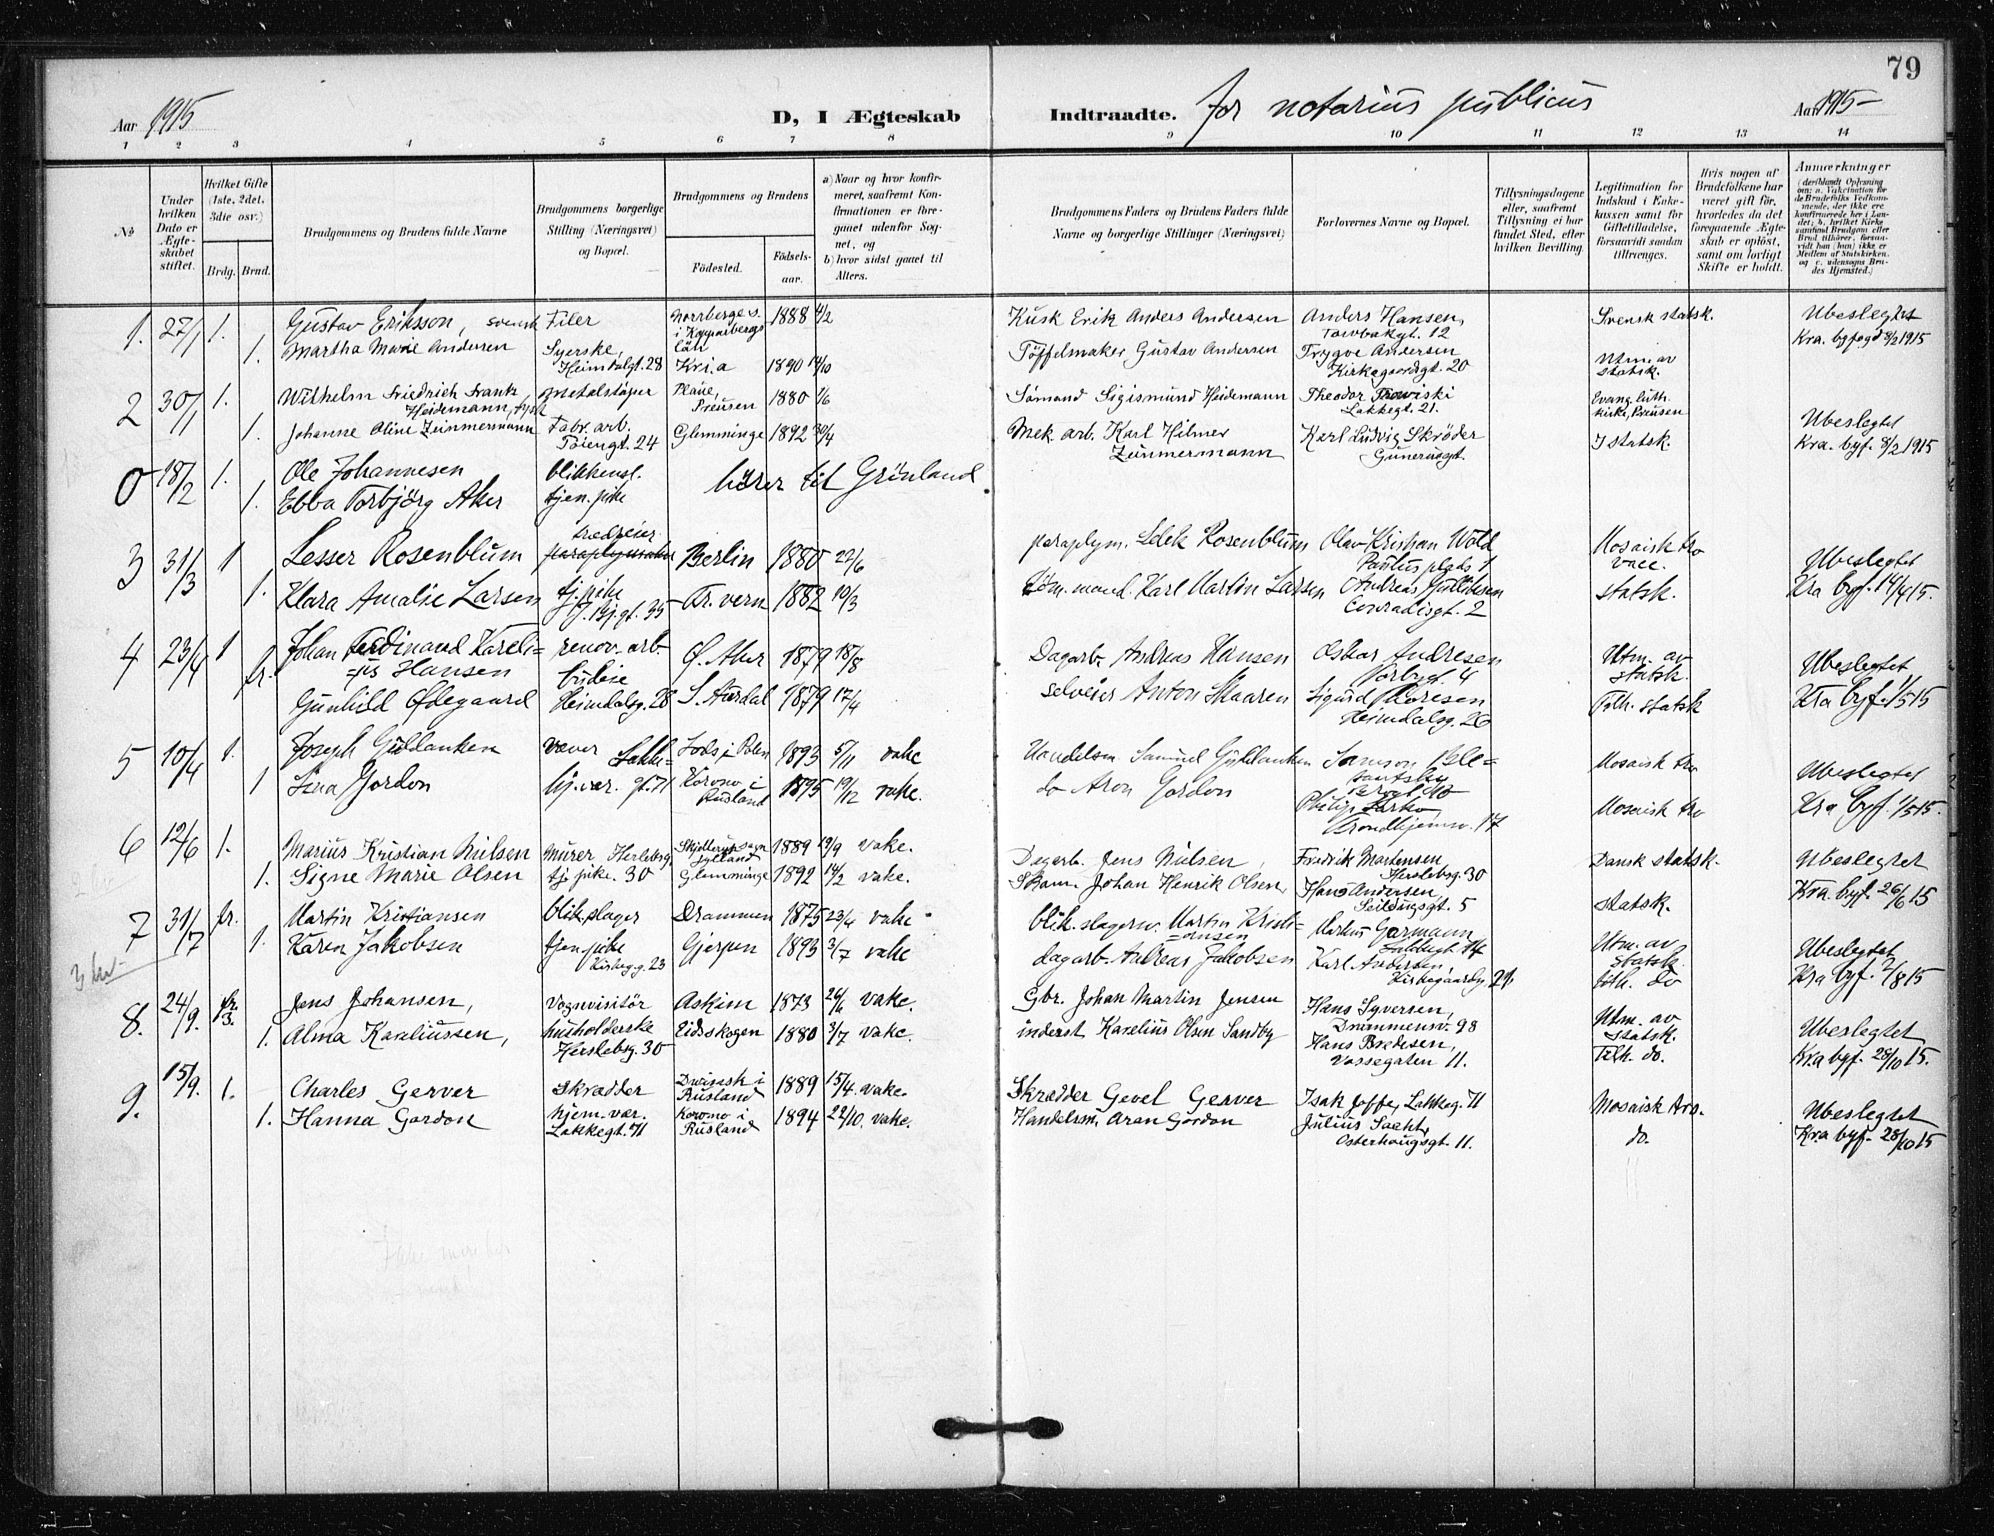 79
Aar 1915
D, I Ægteskab Indtraadte. for notarius publicus
Aar 1915
1 2 3 4 5 6 7 8 9 10 11 12 13 14
№
Under hvilken Dato er Ægteskabet stiftet.
Hvilket Gifte (1ste, 2det, 3die osv.)
Brdg. Brud.
Brudgommens og Brudens fulde Navne
Brudgommens borgerlige Stilling (Næringsvei) og Bopæl.
Brudgommens og Brudens
Fødested. Fødselsaar.
a) Naar og hvor konfirmeret, saafremt Konfirmationen er foregaaet udenfor Sognet, og
b) hvor sidst gaaet til Alters.
Brudgommens Faders og Brudens Faders fulde Navne og borgerlige Stillinger (Næringsvei)
Forlovernes Navne og Bopæl.
Tillysningsdagene eller, saafremt Tillysning ei har fundet Sted, efter hvilken Bevilling.
Legitimation for Indskud i Enkekassen samt for Giftetilladelse, forsaavidt saadan tiltrænges.
Hvis nogen af Brudefolkene har været gift før, hvorledes da det foregaaende Ægteskab er opløst, samt om lovligt Skifte er holdt.
Anmærkninger
(deriblandt Oplysning om: a. Vakcination for de Brudefolks Vedkommende, der ikke ere konfirmerede her i Landet; b. hvilket Kirkesamfund Brudgom eller Brud tilhører, forsaavidt han (hun) ikke er Medlem af Statskirken, og c. udensogns Brudes Hjemsted.)
1. 27/1 1. Gustav Eriksson, svensk Filer 1888 4/2 Kusk Erik Anders Andersen Anders Hansen, 12 Svensk statsk. Ubeslegtet
1. Martha Marie Andersen Syerske, Heimdalgt. 28 Kr.i.a 1890 14/10 Tøffelmaker Gustav Andersen Trygve Andersen Kirkegaardsgt. 20 Utm. av statsk. Kra. byfogd 8/2 1915
2 30/1 1. Wilhelm Friedrich Frank Heidemann, tysk metalstøper Preusen 1880 1/6 Sømand Sigismund Heidemann Theodor Lakkegt. 21. Evang. luth. kirke, Preusen Ubeslegtet
1. Johanne Aline Zimmermann Fabr. arb. Tøiengt. 24 Glemminge 1892 30/4 Mek. arb. Karl Hilmer Zimmermann Karl Ludvig Skrøder Gunerusgt. I statsk. Kra. byf. 8/2 1915
0 18/2 1. Ole Johannesen blikkensl. hører til Grønland.
1. Ebba Torbjørg Aker tjen. pike
3 31/3 1 Lesser Rosenblum trædreier paraplymaker Berlin 1880 22/6 paraplym. Rosenblum Olav Kristian Wold Paulus plads 1 Mosaisk tro vacc. Ubeslegtet
1. Klara Amalie Larsen tj. pike J. Bj. gt. 35 Tr. vern 1882 10/3 tøm. mand. Karl Martin Larsen Andreas Conradisgt. 2 statsk. Kra byf. 14/4 15.
4 23/4 1 Johan Ferdinand Kareli= renov. arb. Ø. Aker 1879 18/8 Dagarb. Andreas Hansen Oskar Andresen 4 Utm. av statsk. Ubeslegtet
fr. =us Hansen
Gunhild Ødegaard budeie Heimdalsg. 28 S. Aurdal 1879 17/4 selveier Anton Skaaren Sigurd Thoresen Heimdalsg. 26 Tilh. statsk Kra byf. 1/5 15
5 10/4 1. Joseph Guttanken væver Lakke= Lods i Polen 1893 5/11 vake Handelsm Samuel Samson Mosaisk tro Ubeslegtet
1 Lina Gordon hj. vær. gt. 71 Korono i Rusland 1895 19/12 vake. do Aron Gordon Philip Trondhjemsv. 17 Mosaisk tro Kra byf. 1/5 15.
6 12/6 1. Marius Kristian Nielsen murer Herslebsg Jylland 1889 19/9 vake. Dagarb. Jens Nielsen, Fredrik Mortensen Herslebsg. 30 Dansk statsk. Ubeslegtet
1. Signe Marie Olsen tj. pike. 30 Glemminge 1892 14/2 vake. Skom. Johan Henrik Olsen, Hans Andersen, Seildugsgt. 5 statsk. Kra. byf. 26/6 15
7 31/7 fr. Martin Kristiansen blik. slager Drammen 1875 23/4 vake blik. slagerm. Martin Kristi=ansen Markus Gormann Lakkegt. 14 Utm. av statsk. Ubeslegtet
1. Karen Jakobsen tjen. pike Kirkeg. g. 23 Gjerpen 1893 3/7 vake dagarb. Andreas Jakobsen Karl Andersen, Kirkegaardsg. 21 tilh. do Kra byf. 2/8 15
8. 24/9. fr. 3. Jens Johansen, vognvisitør Askim 1873 26/6 vake. Gbr. Johan Martin Jensen Hans Syversen, Drammensv. 98 Utm. av statsk. Ubeslegtet
1. Alma Kareliussen, husholderske Herslebsg. 30 Eidsskogen 1880 3/7 vake. inderst Karelius Olsen Sandby Hans Bredesen, Vossegaten 11. Tilh. do. Kra byf. 28/10 15.
9. 15/9. 1. Charles Gerver Skrædder Dwinsk i Rusland 1889 15/4. vake. Skrædder Gevel Gerver Isak Joffe, Lakkeg. 71 Mosaisk tro. Ubeslegtet
1. Hanna Gordon hjem. vær. Lakkegt. 71 Korono i Rusland 1894 22/10. vake. Handelsm. Aran Gordon Julius Sacht, Osterhausgt. 11. do. Kra byf. 28/10 15